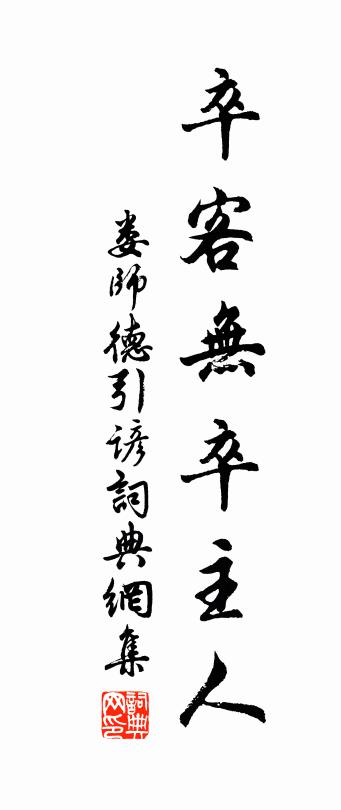 卒客無卒主人
娄師德引諺詞典網集
詞典網印